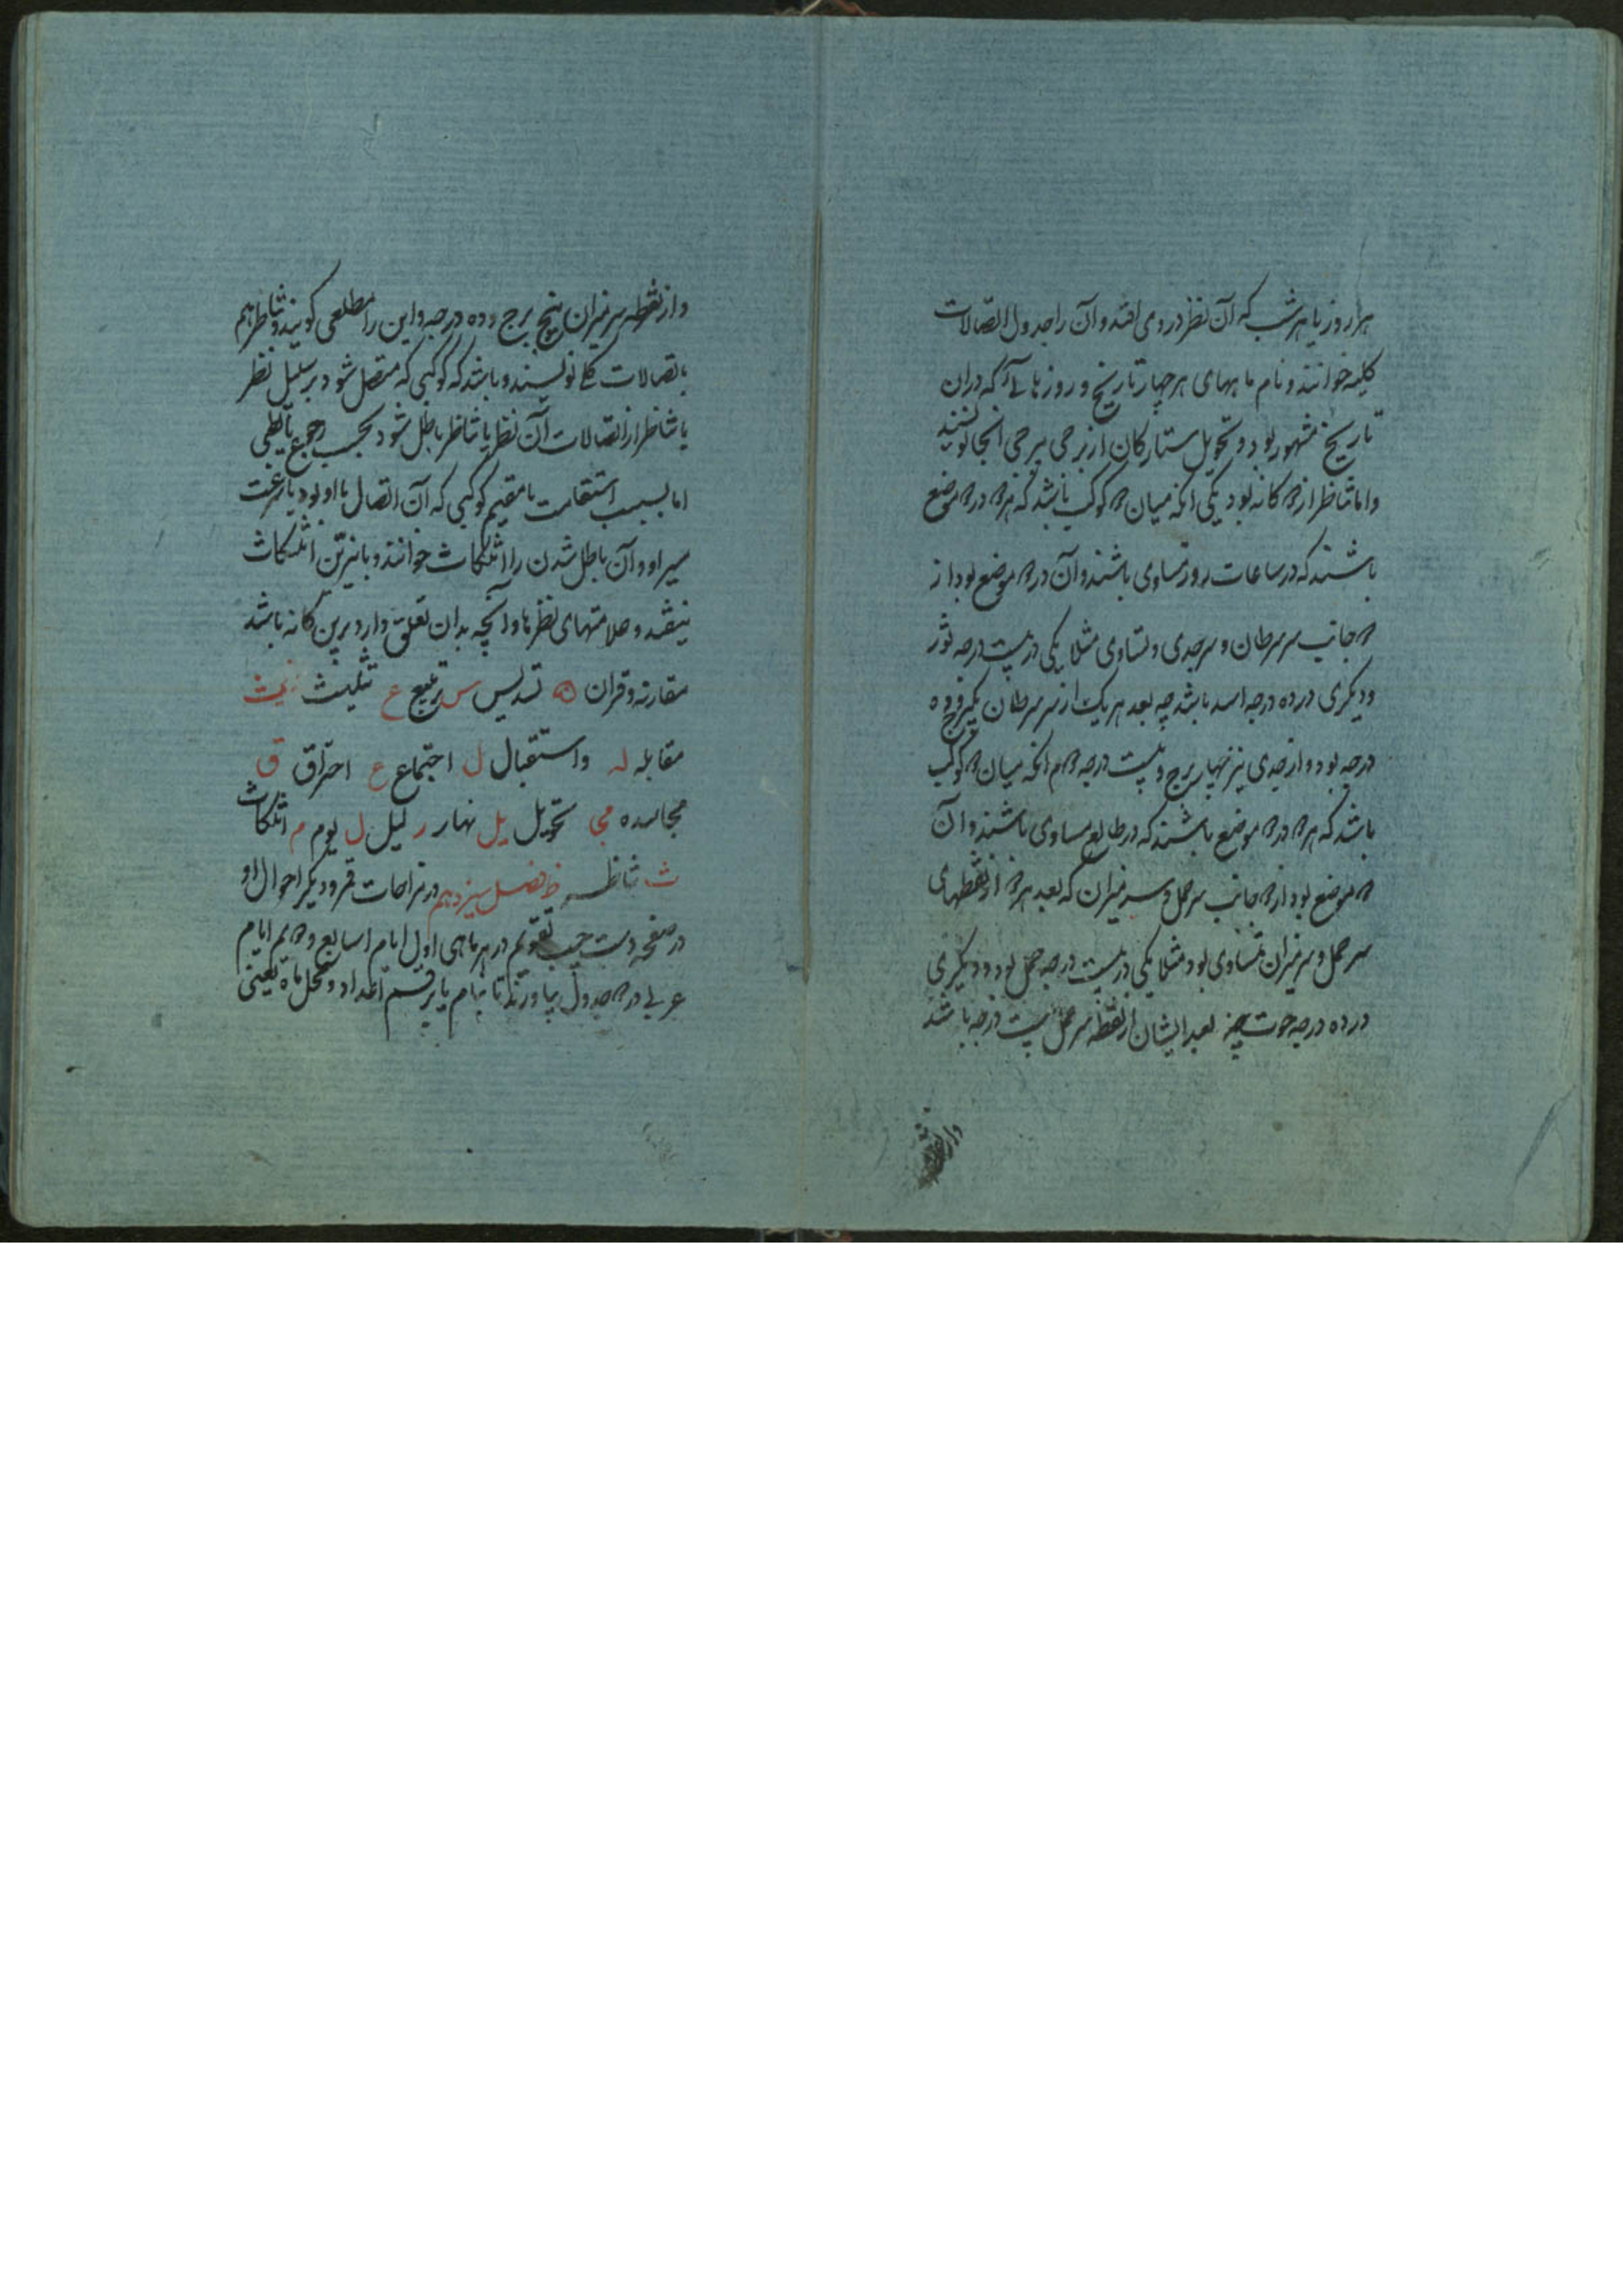 هر روز یا هر شب که آن نظر درو می افتد و آن را جدول اتصالات
کلیه خوانند و نام ماههای هر چهار تاریخ و روزهایی که دران
تاریخ مشهور بود و تحویل ستارکان از برجی ببرجی انجا نویسند
واما تناظر از ۲ کانه بود یکی انکه میان ۲ کوکب باشد که هر ۲ در ۲ موضع
باشند که در ساعات روز متساوی باشند و آن در ۲ موضع بود از
۲ جانب سر سرطان و سر جدی و تساوی مثلا یکی در بیست درجه ثور
ودیکری در ده درجه اسد باشد چه بعد هر یک از سر سرطان یکبرج و ده
درجه بود و از جدی نیز چهار برج و بیست درجه ۲م انکه میان ۲ کوکب
باشد که هر ۲ در ۲ موضع باشند که در مطالع مساوی باشند و آن
۲ موضع بود از ۲ جانب سر حمل و سر میزان که بعد هر ۲ از نقطهای
سر حمل و سر میزان متساوی بود مثلا یکی در بیست درجه حمل بود و دیکری
در ده درجه حوت چه بعد ایشان از نقطه سر حمل بیست درجه باشد
و از نقطه
و از نقطه سر میزان پنج برج و ده درجه و این را مطلعی کویند و تناظر هم
باتصالات کلی نویسند و باشد که کوکبی که متصل شود بر سبیل نظر
یا تناظر از اتصالات آن نظر یا تناظر باطل شود بحسب رجوع
اما بسبب استقامت یا مقیم کوکبی که آن اتصال با او بود یا رجعت
سیر او و آن باطل شدن را انتکاث خوانند و بنیرین انتکاث
نیفتد و علامتهای نظرها و آنچه بدان تعلق دارد برین کانه باشد
مقارنه و قران ن تسدیس س تربیع ع تثلیث ث
مقابله له واستقبال ل اجتماع ع احتراق ق
مجاسده مجی تحویل یل نهار ر لیل ل یوم م انتکاث
ث تناظر ظ فصل سیزدهم در مزاجات قمر و دیکر احوال او
در صفحه دست چپ تقویم در هر ماهی اول ایام اسابیع و ۲یم ایام
عربی در ۲ جدول بیاورند تا بنام یا برقم اعداد و محل ماه یعنی